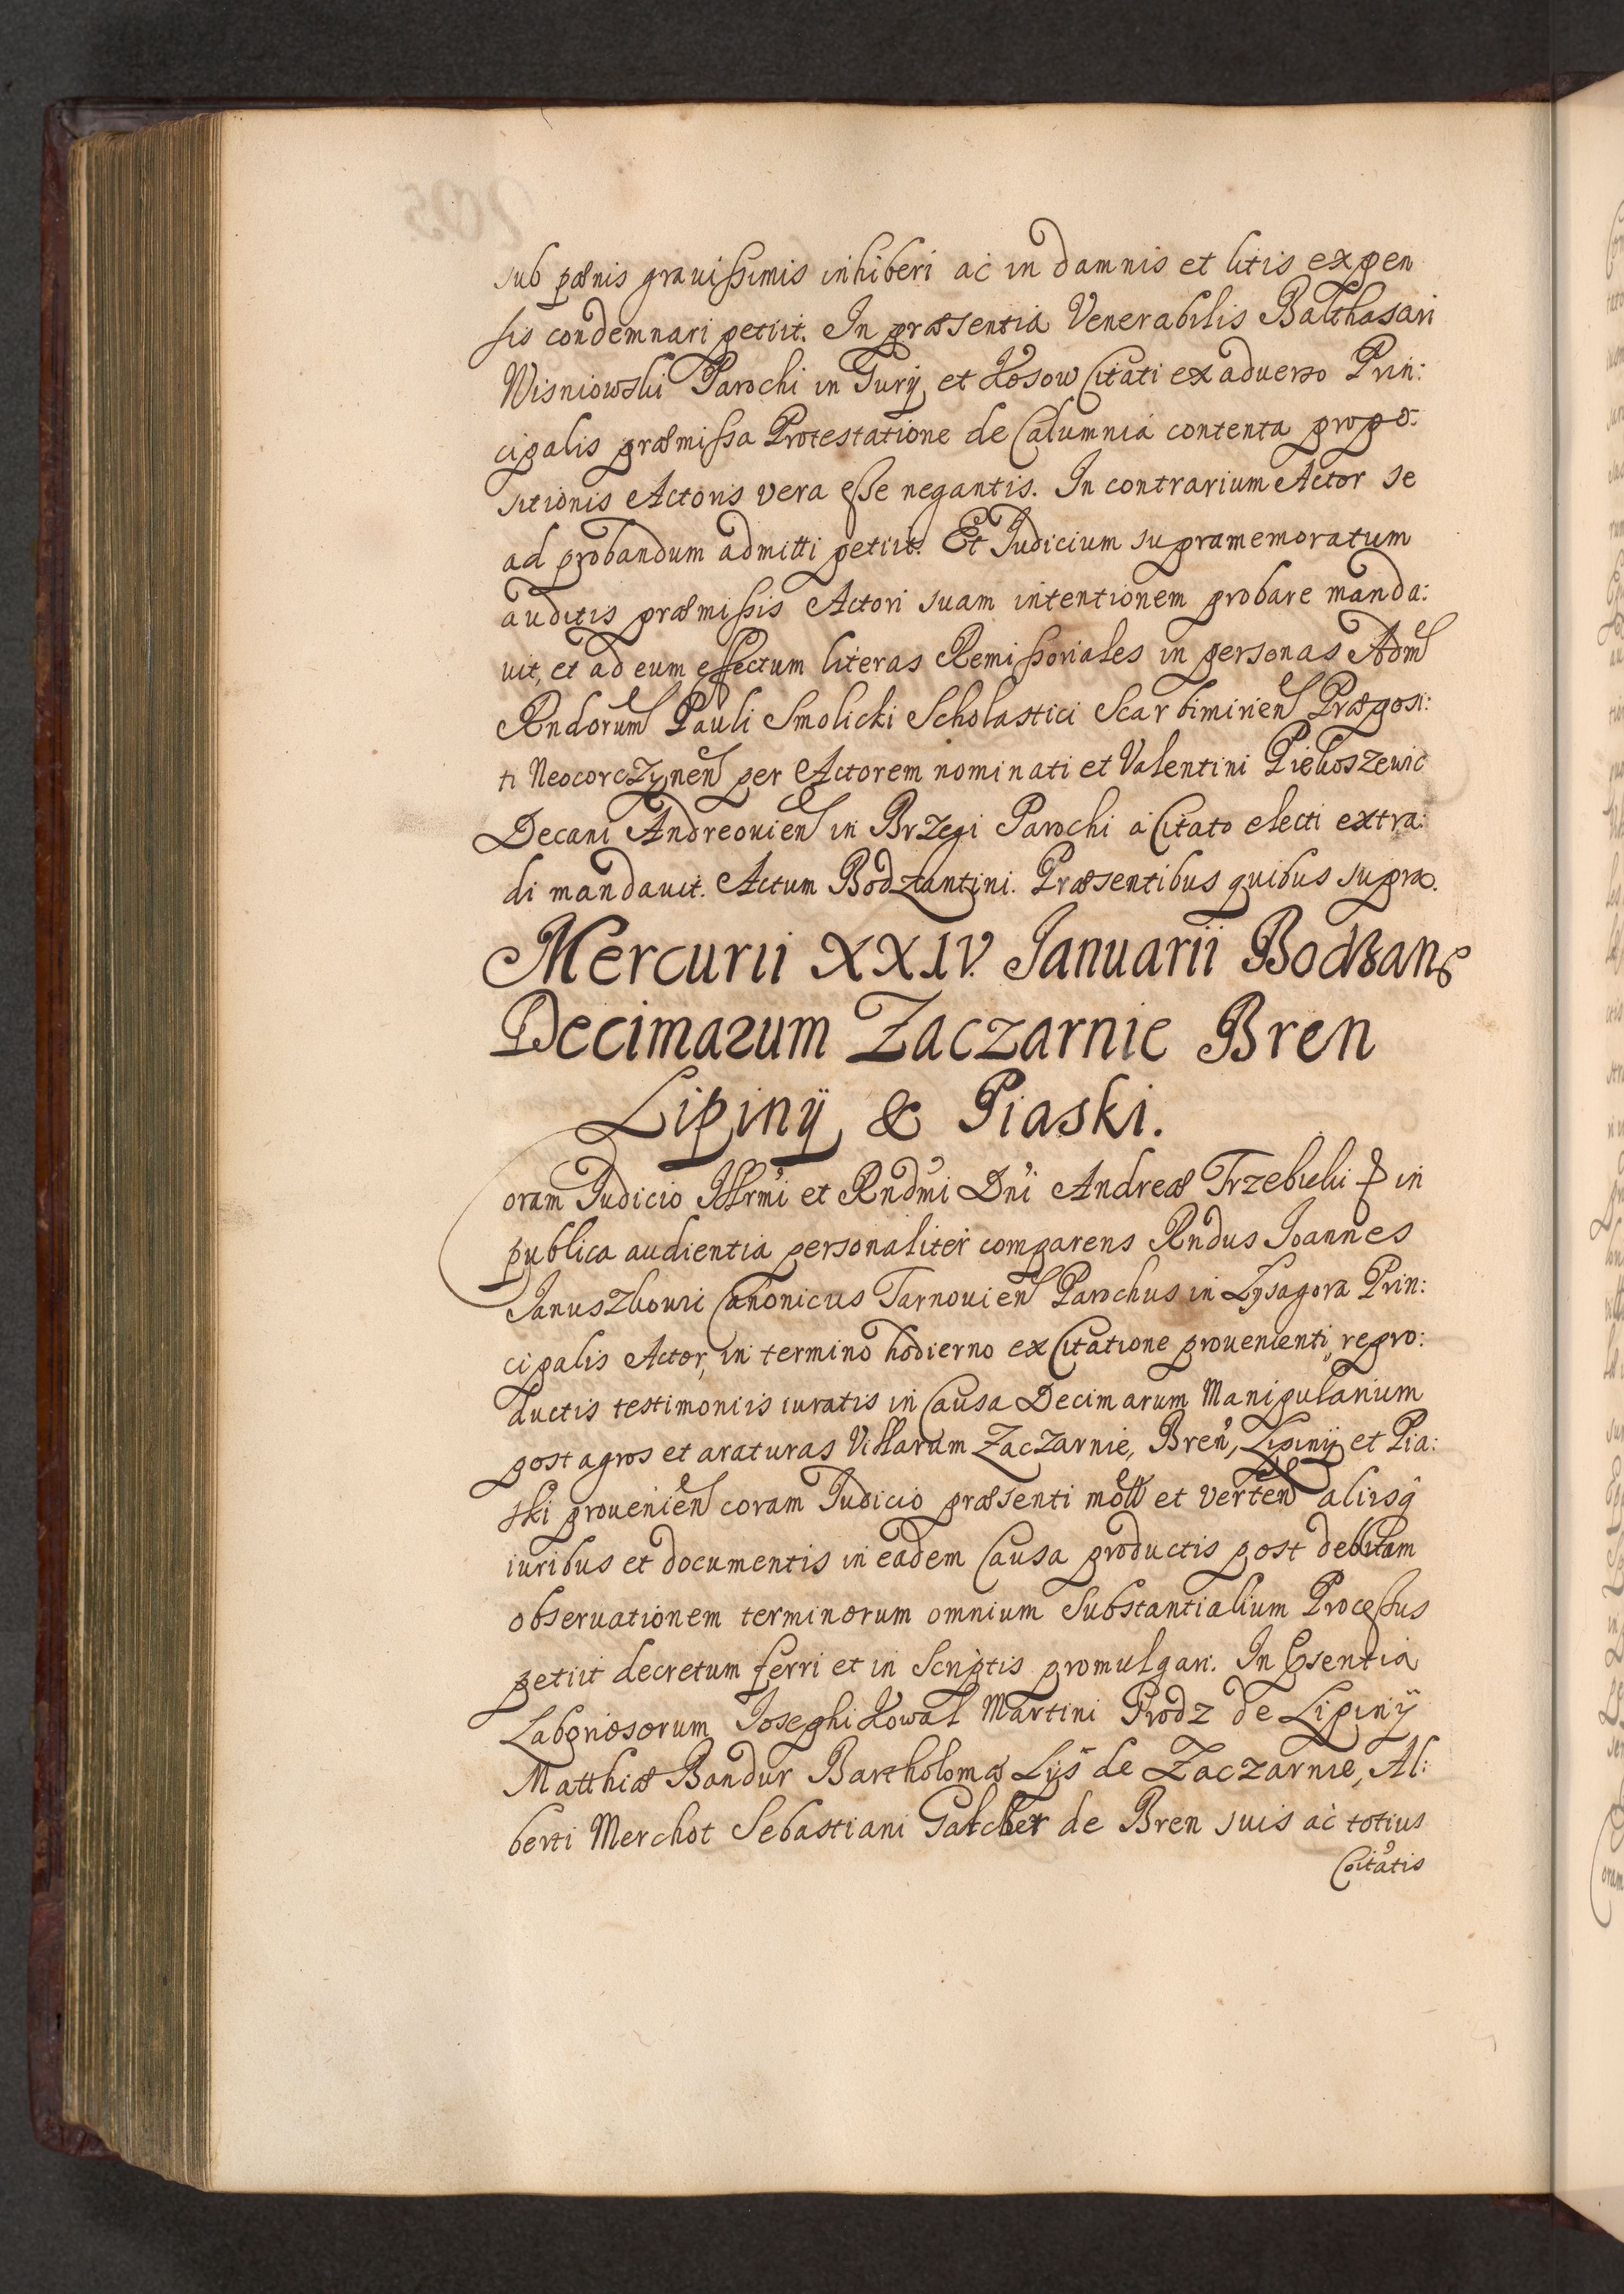 sub pænis grauissimis inhiberi ac in damnis et litis expen
sis condemnari petiit. In præsentia Venerabilis Balthasari
Wisniowski Parochi in Gury et Kosow Citati ex aduerso Prin:
cipalis præmissa Protestatione de Calumnia contenta propo:
sitionis Actoris vera esse negantis. In contrarium Actor se
ad probandum admitti petiit. Et Judicium supramemoratum
auditis præmissis Actori suam intentionem probare manda:
uit, et ad eum effectum literas Remissoriales in personas Adm
Rndorum Pauli Smolicki Scholastici Scarbimirien Præposi:
ti Neocorczynen per Actorem nominati et Valentini Piekoszewic
Decani Andreouien in Brzegi Parochi a Citato electi extra:
di mandauit. Actum Bodzantini. Præsentibus quibus supra.
Mercurii XXIV. Januarii Bodzan
Decimarum Zaczarnie Bren
Lipinÿ & Piaski.
oram Judicio Illrmi et Rndmi Dni Andreæ Trzebicki in
publica audientia personaliter comparens Rndus Joannes
Januszkowic Canonicus Tarnouien Parochus in Lysagora Prin:
cipalis Actor, in termino hodierno ex Citatione prouenienti, repro:
ductis testimoniis iuratis in Causa Decimarum Manipularium
post agros et araturas Villarum Zaczarnie, Bren, Lipinÿ et Pia:
ski prouenien coram Judicio præsenti mott et verten aliisq
iuribus et documentis in eadem Causa productis post debitam
obseruationem terminorum omnium Substantialium Processus
petiit decretum ferri et in Scriptis promulgari. In Psentia
Laboriosorum Josephi Kowal Martini Prodz de Lipinÿ
Matthiæ Bandur Bartholomæ Lÿs de Zaczarnie, Al:
berti Merchot Sebastiani de Bren suis ac totius
Coitatis